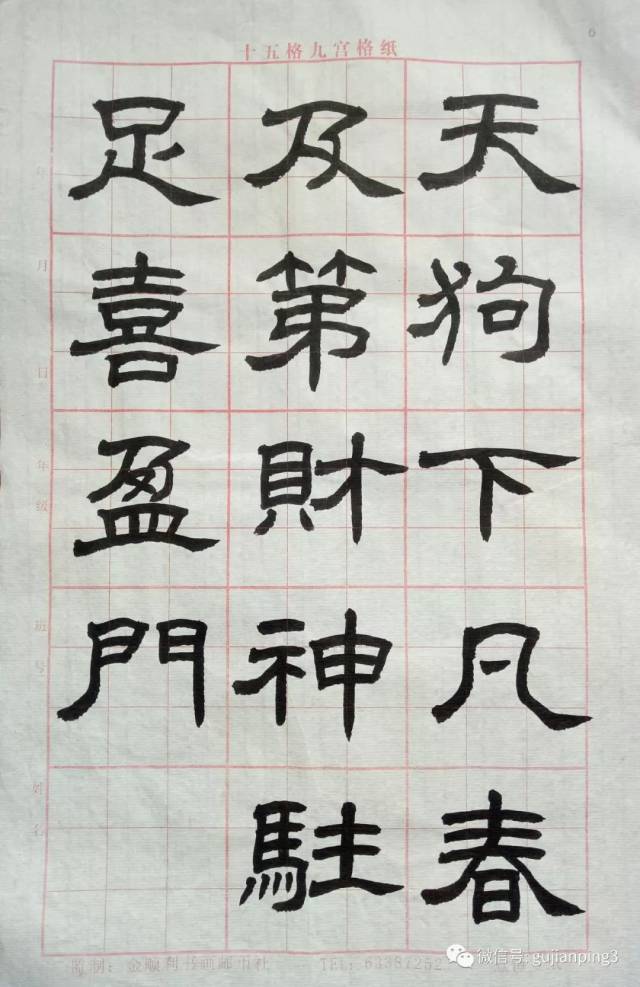 十五格九宫格纸
天狗下凡春
及第財神駐
足喜盈門
年
月
日
年级
班
号
姓名
6
监制：金顺利书画邮币社
TEL：
微信号: gujianping3